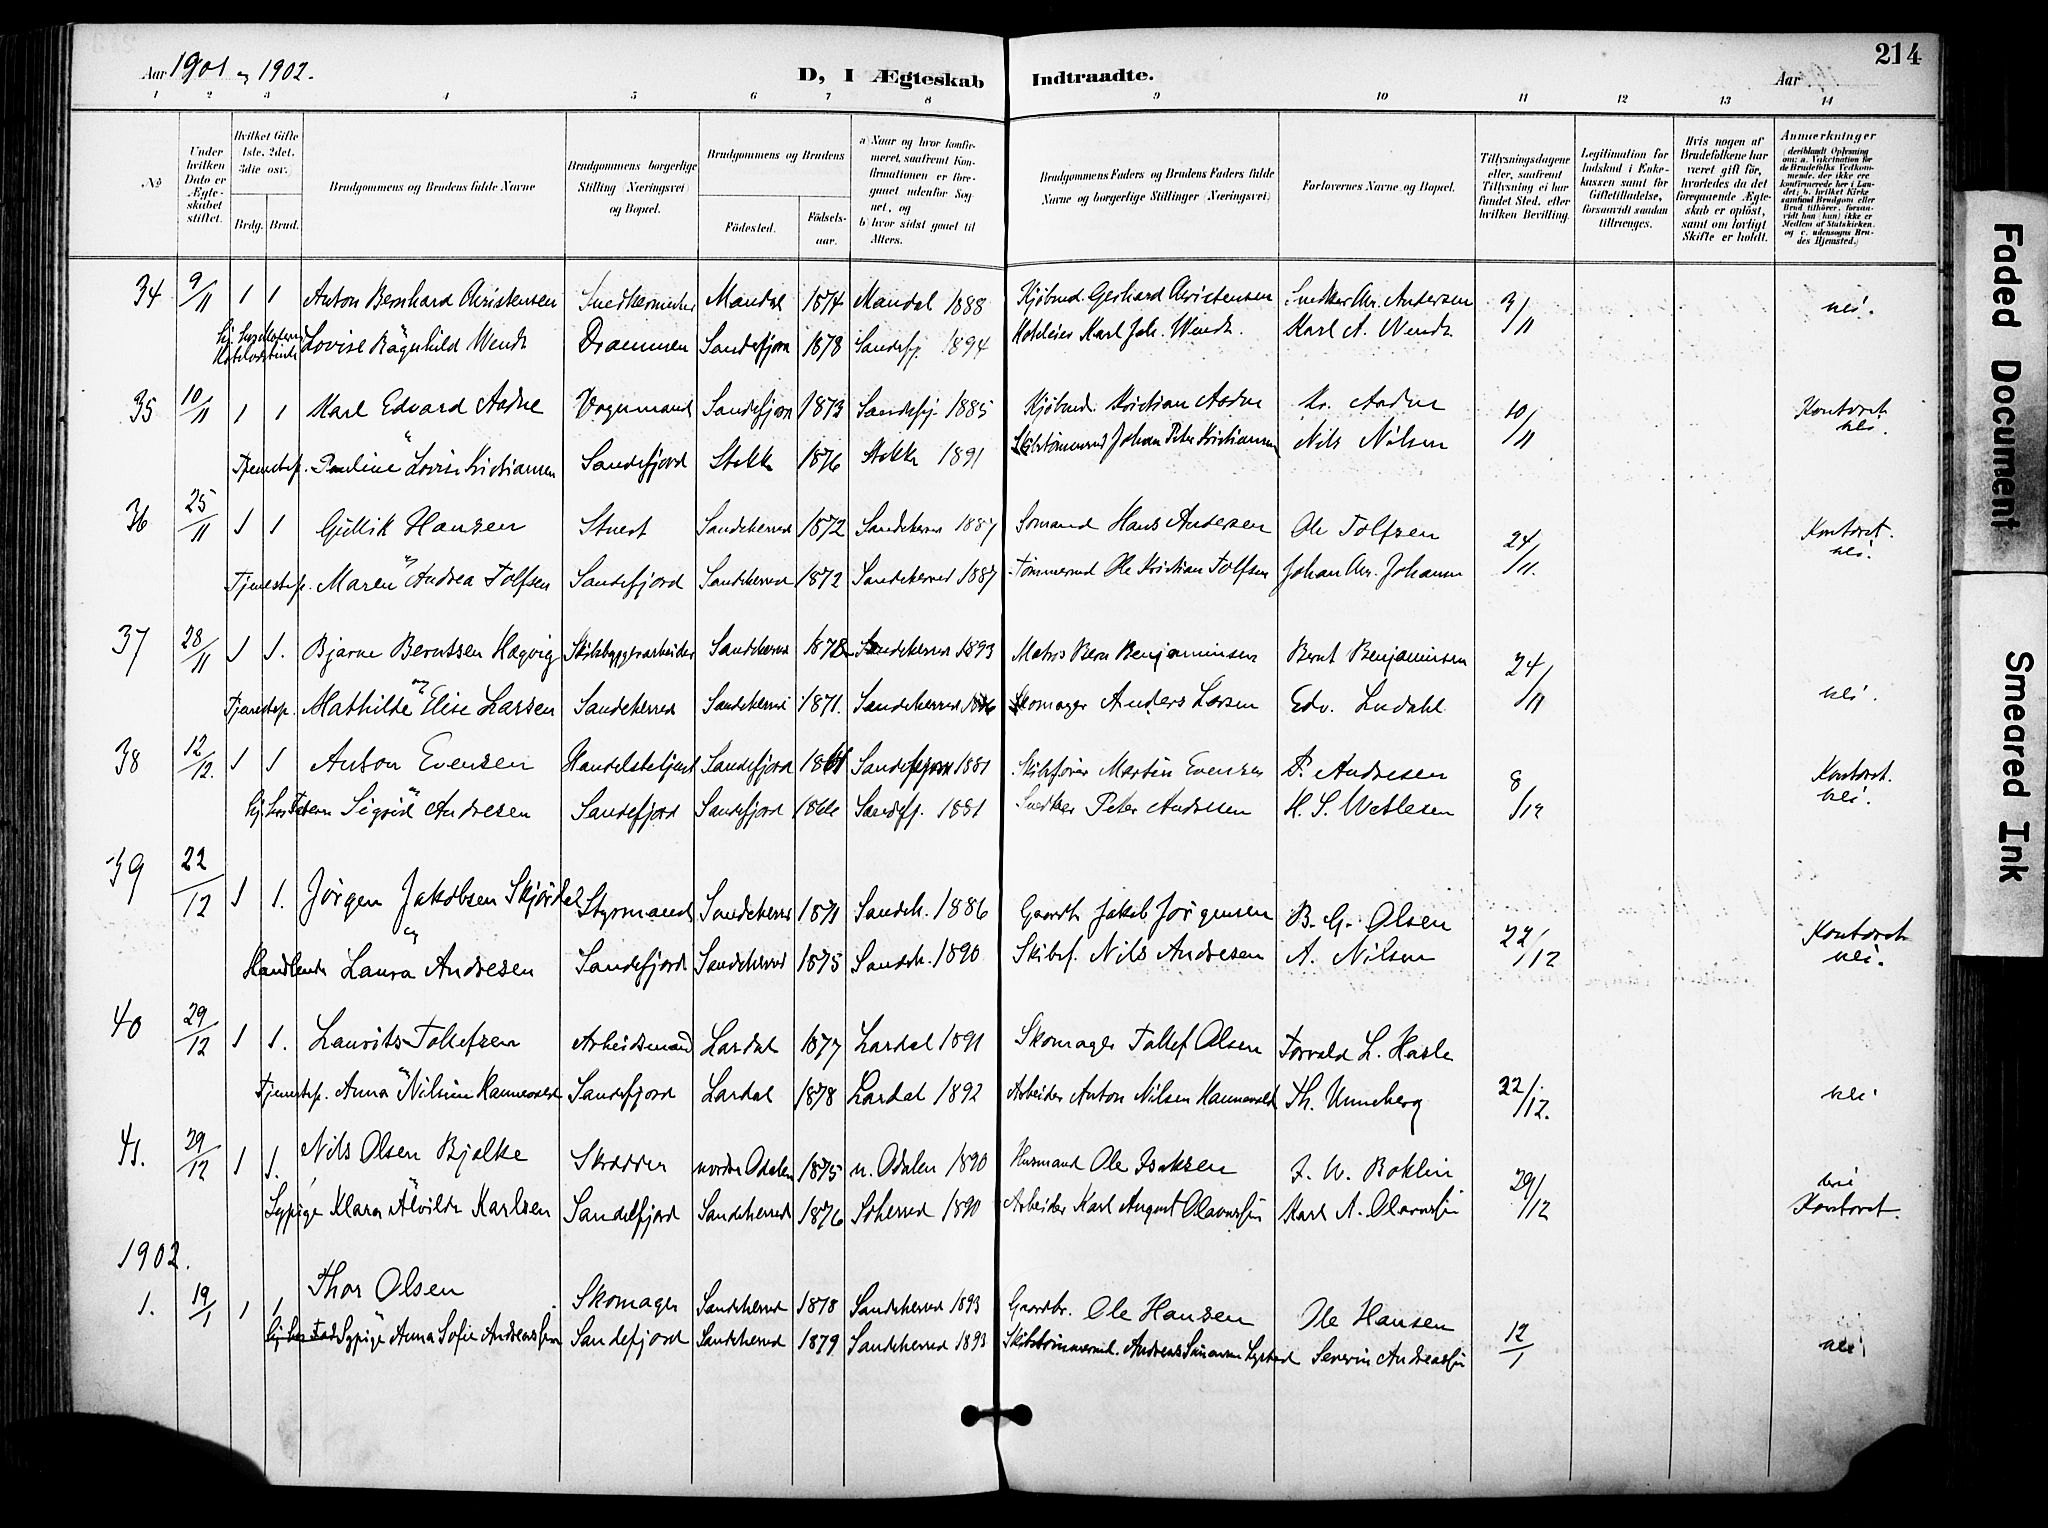 214
Aar 1901 og 1902.
D, I Ægteskab Indtraadte.
Aar
1 2 3 4 5 6 7 8 9 10 11 12 13 14
No
Under hvilken Dato er Ægteskabet stiftet.
Hvilket Gifte (1ste, 2det, 3die osv.)
Brdg. Brud.
Brudgommens og Brudens fulde Navne
Brudgommens borgerlige Stilling (Næringsvei) og Bopæl.
Brudgommens og Brudens
Födested. Födselsaar.
a) Naar og hvor konfirmeret, saafremt Konfirmationen er foregaaet udenfor Sognet, og
b) hvor sidst gaaet til Alters.
Brudgommens Faders og Brudens Faders fulde Navne og borgerlige Stillinger (Næringsvei)
Forlovernes Navne og Bopæl.
Tillysningsdagene eller, saafremt Tillysning ei har fundet Sted, efter hvilken Bevilling.
Legitimation for Indskud i Enkekassen samt for Giftetilladelse, forsaavidt saadan tiltrænges.
Hvis nogen af Brudefolkene har været gift før, hvorledes da det foregaaende Ægteskab er oplöst, samt om lovligt Skifte er holdt.
Anmærkninger (deriblandt Oplysning om: a. Vakcination for de Brudefolks Vedkommende, der ikke ere konfirmerede her i Landet; b. hvilket Kirkesamfund Brudgom eller Brud tilhörer, forsaavidt han (hun) ikke er Medlem af Statskirken, og c. udensogns Brudes Hjemsted.)
34 9/11 1 1 Anton Bernhard Christensen Snedkermester Mandal 1874 Mandal 1888 Kjøbmd. Gerhard Christensen Snedker Chr. Andersen 3/11 nei.
Lovise Ragnhild Wendt Drammen Sandefjord 1878 Sandefj. 1894 Hoteleier Karl Joh. Wendt Karl A. Wendt
35 10/11 1 1 Karl Edvard Aadne Vognmand Sandefjord 1873 Sandefj. 1885 Kjøbmd. Kristian Aadne Kr. Aadne 10/11 Kontoret nei.
Tjenestep. Pauline Lovise Kristiansen Sandefjord Stokke 1876 Stokke 1891 Skibstømmermd Johan Peter Kristiansen Nils Nilsen
36 25/11 1 1 Gullik Hansen Stuert Sandeherred 1872 Sandeherred 1887 Sømand Hans Andersen Ole Tolfsen 24/11. Kontoret. nei.
Tjenestep. Maren Andrea Tolfsen Sandefjord Sandeherred 1872 Sandeherred 1887 Tømmermd Ole Kristian Tolfsen Johan Chr. Johansen
37 28/11 1 1. Bjarne Berntsen Hægvig Skibsbyggerarbeider Sandeherred 1878 Sandeherred 1893 Matros Bern Benjaminsen Bernt Benjaminsen 24/11 nei.
Tjenestep. Mathilde Elise Larsen Sandeherred Sandeherred 1871. Sandeherred 1886 Skomager Anders Larsen Edv. Lindahl
38 12/12. 1 1 Anton Evensen Handelsbetjent Sandefjord 1866 Sandefjord 1881 Skibsfører Martin Evensen P. Andresen 8/12 Kontoret. nei.
hj. hos Faderen Sigrid Andresen Sandefjord Sandefjord 1866 Sandefj. 1881 Snedker Peter Andresen H. S. Wetlesen
39 22/12 1 1. Jørgen Jakobsen Skjørdal Styrmand Sandeherred 1871 Sandeh. 1886 Gaardb. Jakob Jørgensen B. G. Olsen 22/12 Kontoret nei.
og
Handlende Laura Andresen Sandefjord Sandeherred 1875 Sandeh. 1890 Skibsf. Nils Andresen A. Nilsen
40 29/12 1 1. Laurits Tollefsen Arbeidsmand Lardal 1877 Lardal 1891 Skomager Tollef Olsen Torvald L. Hasle
Tjenestep. Anna Nilsine Hannevold Sandefjord Lardal 1878 Lardal 1892 Arbeider Anton Nilsen Hannevold Th. Unneberg 22/12. nei
41. 29/12 1 1. Nils Olsen Bjelke Skrædder nordre Odalen 1875 n. Odalen 1890 Husmand Ole Isaksen J. W. Boklin 29/12 nei
Sypige Klara Alvilde Karlsen Sandefjord Sandeherred 1876 Soherred 1890 Arbeider Karl August Olavessøn Karl A. Olavessøn Kontoret.
1902.
1. 19/1 1 1 Thor Olsen Skomager Sandeherred 1878 Sandeherred 1893 Gaardbr. Ole Hansen Ole Hansen 12/1 nei
Sypige Anna Sofie Andreassen Sandefjord Sandeherred 1879 Sandeherred 1893 Skibstømmermd. Andreas Severin Andreassøn
Faded Document
Smeared Ink